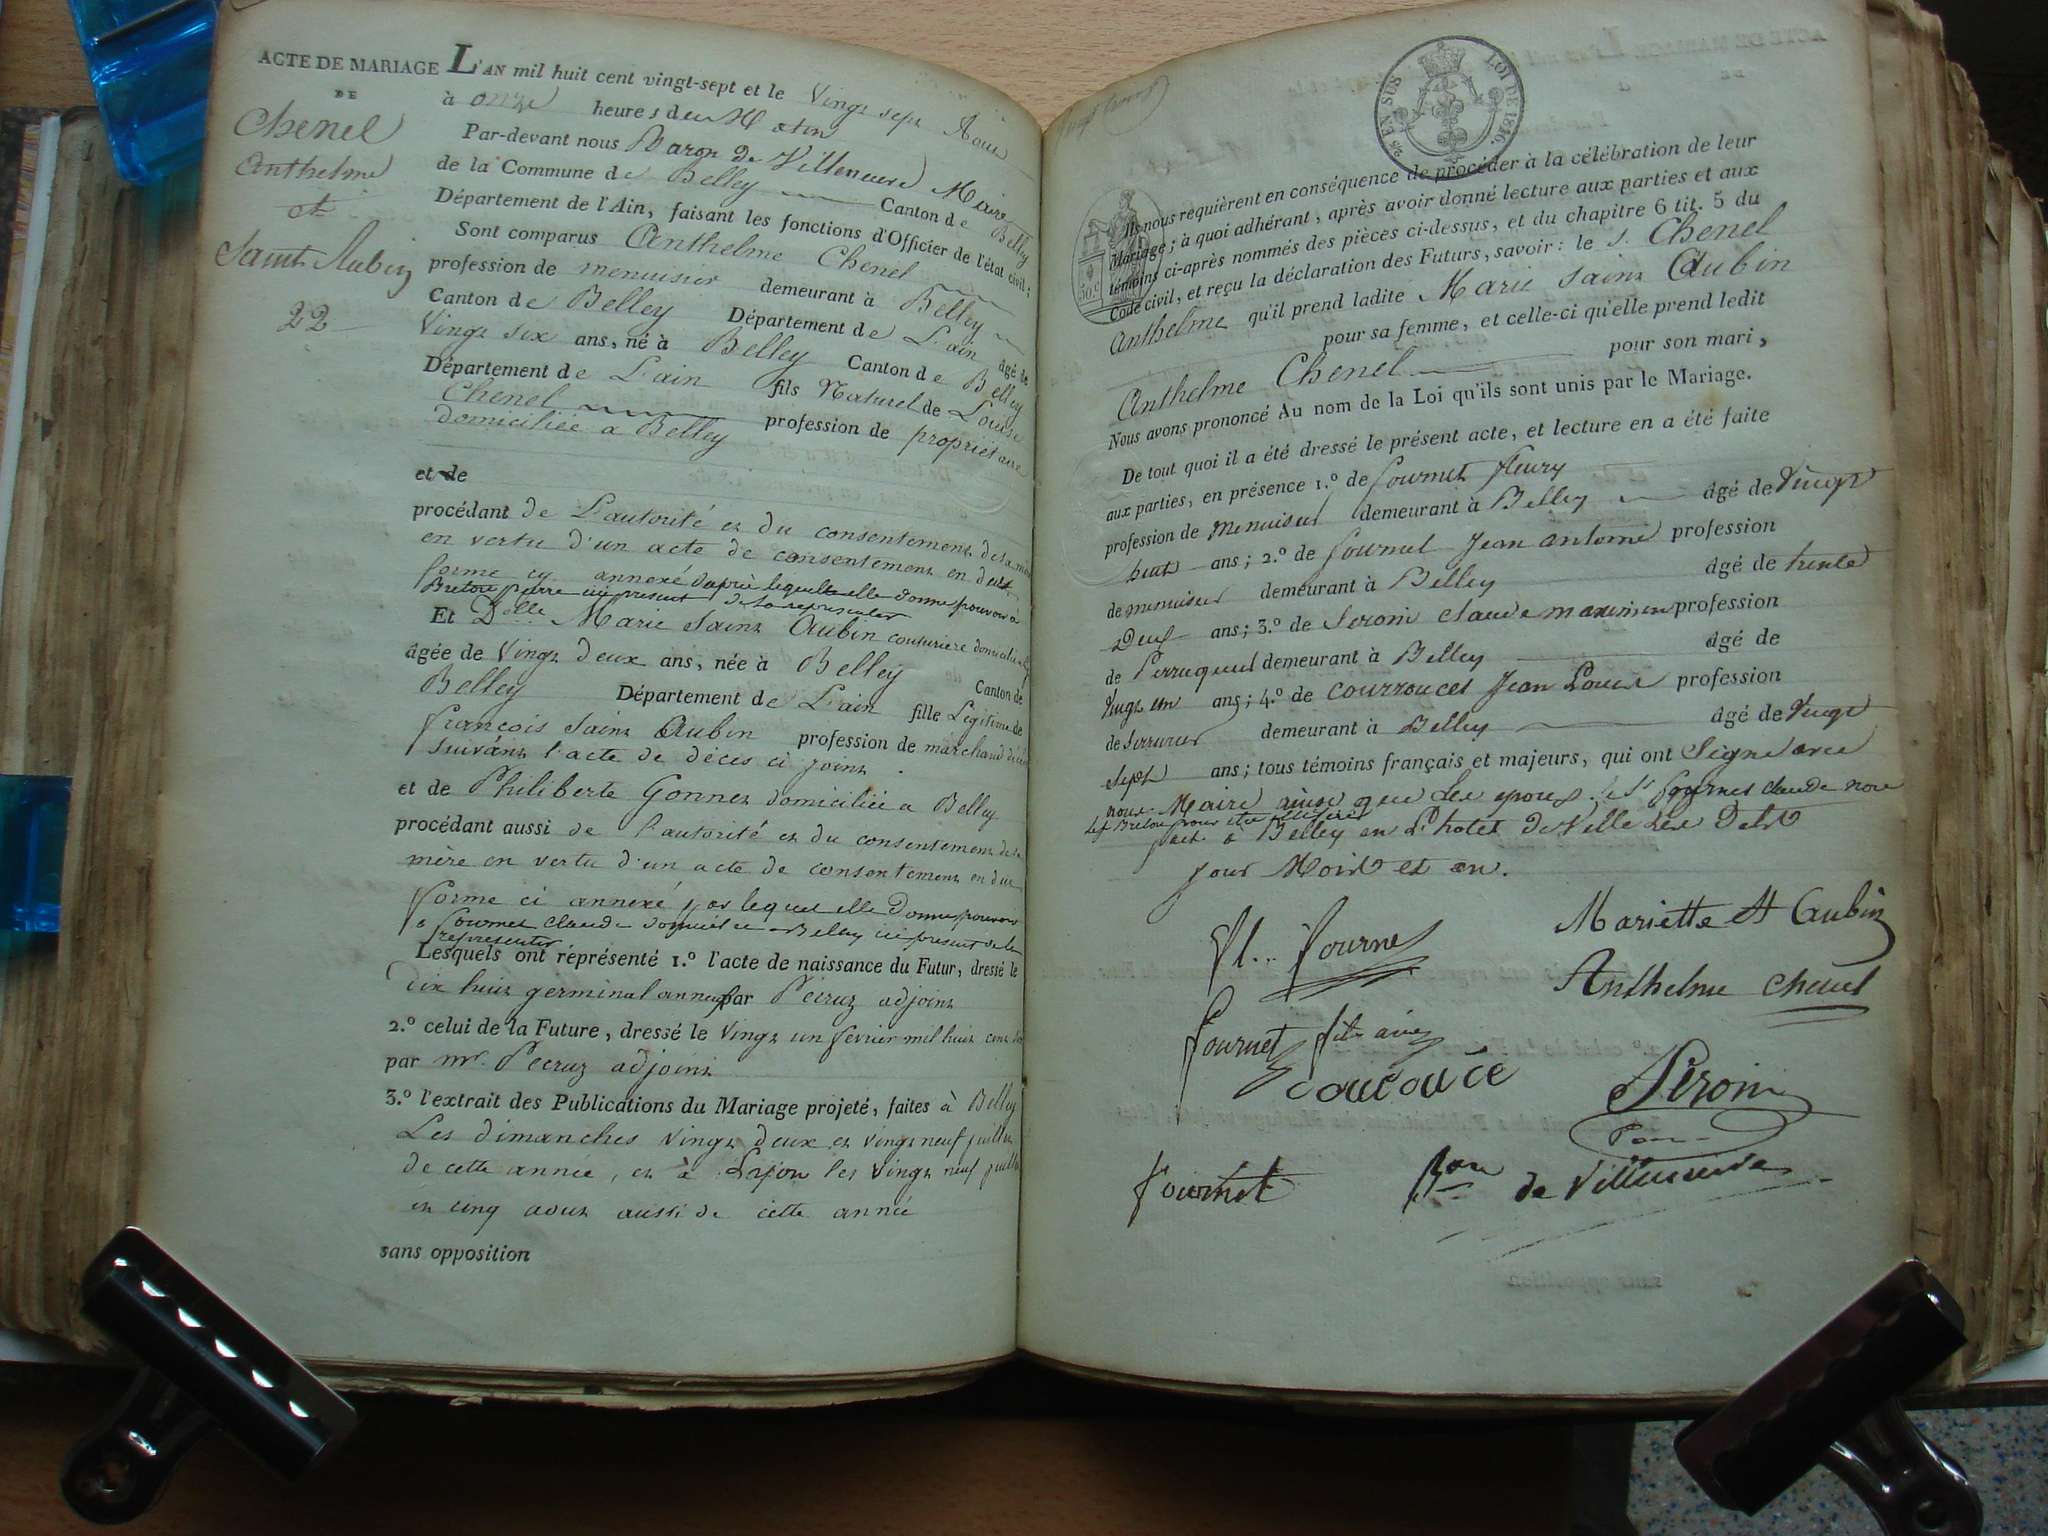 ACTE DE MARIAGE
DE
Chenel
Anthelme
et
Saint Aubin
22
L'AN mil huit cent vingt-sept et le Vingt sept Aout
à onze heures du Matin
Par-devant nous Baron de Villeneuve Maire
de la Commune de Belley Canton de Belley
Département de l'Ain, faisant les fonctions d'Officier de l'état civil;
Sont comparus Anthelme Chenel
profession de menuisier demeurant à Belley
Canton de Belley Département de L'ain âgé de
Vingt six ans, né à Belley Canton de Belley
Département de L'ain fils Naturel de Louise
Chenel profession de propriétaire
domiciliée a Belley
et de
procédant de L'autorité et du consentement de sa mère
en vertu d'un acte de consentement en due
forme cy annexé d'après lequel elle donne pouvoir à
Breton pierre ici present de la representer
Et Delle Marie Saint Aubin couturiere domiciliée
âgée de Vingt deux ans, née à Belley Canton de
Belley Département de L'ain fille Légitime de
françois Saint Aubin profession de marchand décédé
suivant l'acte de décès ci joint
et de Philiberte Gonnet domiciliée a Belley
procédant aussi de l'autorité et du consentement de sa
mère en vertu d'un acte de consentement en due
forme ci annexé par lequel elle donne pouvoir
a fournet claude domicilié a Belley ici present de la
representer
Lesquels ont représenté 1.º l'acte de naissance du Futur, dressé le
dix huit germinal an neuf par Pecruz adjoint
2.º celui de la Future, dressé le Vingt un fevrier mil huit cent
par mr. Pecruz adjoint
3.º l'extrait des Publications du Mariage projeté, faites à Belley
Les dimanches Vingt deux et Vingt neuf juillet
de cette année, et à les Vingt neuf juillet
et cinq aout aussi de cette année
sans opposition
25 EN SUS LOI DE 1816.
50 c
Ils nous requièrent en conséquence de procéder à la célébration de leur
Mariage; à quoi adhérant, après avoir donné lecture aux parties et aux
témoins ci-après nommés des pièces ci-dessus, et du chapitre 6 tit. 5 du
Code civil, et reçu la déclaration des Futurs, savoir: le s. Chenel
Anthelme qu'il prend ladite Marie Saint Aubin
pour sa femme, et celle-ci qu'elle prend ledit
Anthelme Chenel pour son mari,
Nous avons prononcé Au nom de la Loi qu'ils sont unis par le Mariage.
De tout quoi il a été dressé le présent acte, et lecture en a été faite
aux parties, en présence 1.º de fournet fleury
profession de menuisier demeurant à Belley âgé de Vingt
huit ans; 2.º de fournet Jean antoine profession
de menuisier demeurant à Belley âgé de trente
Deux ans; 3.º de Peroni claude maximin profession
de Perruquier demeurant à Belley âgé de
Vingt un ans; 4.º de courrouces Jean Louis profession
de Serrurier demeurant à Belley âgé de Vingt
sept ans; tous témoins français et majeurs, qui ont Signé avec
nous Maire ainsi que Les epoux. le Sr fournet claude non
led Breton pour etre illitéré
fait à Belley en L'hotel De Ville Les Dits
jour Mois et an.
fl.. fournet
Mariette St Aubin
Anthelme chenel
fournet fils ainé
Coucoucé
Peroni
fournet
Bon de Villeneuve